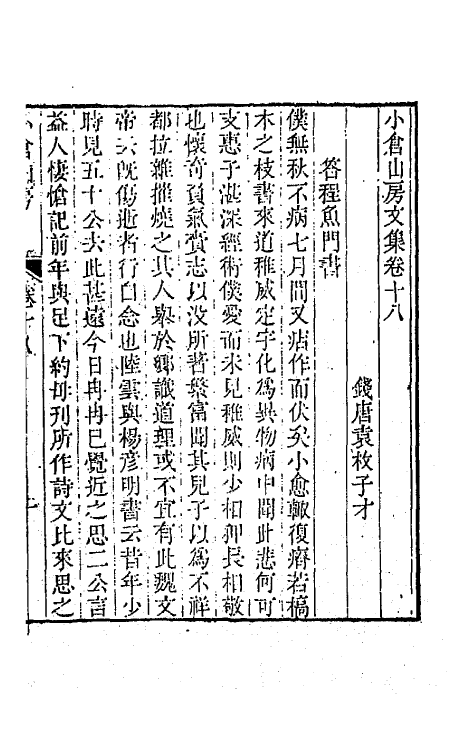 小倉山房文集卷十八
錢唐袁枚子才
答程魚門書
僕無秋不病七月間又痁作而伏矣小愈輒復瘠若槁
木之枝書來道稚威定宇化爲異物病中聞此悲何可
支惠子湛深經術僕愛而未見稚威則少相狎長相敬
也懷奇負氣賫志以沒所著繁富聞其兒子以爲不祥
都拉雜摧燒之其人舉於鄉識道理或不宜有此魏文
帝云旣傷逝者行自念也陸雲與楊彦明書云昔年少
時見五十公去此甚遠今日冉冉已覺近之思二公言
益人悽愴記前年與足下約毋刊所作詩文比來思之
小倉山房
卷十八